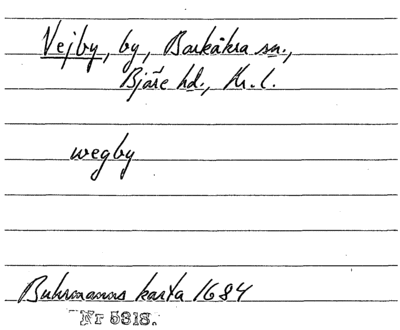 Vejby, by, Barkåkra sn.,
Bjäre hd., Kr. l.
wegby
Buhrmanns karta 1684
Nr 5818.